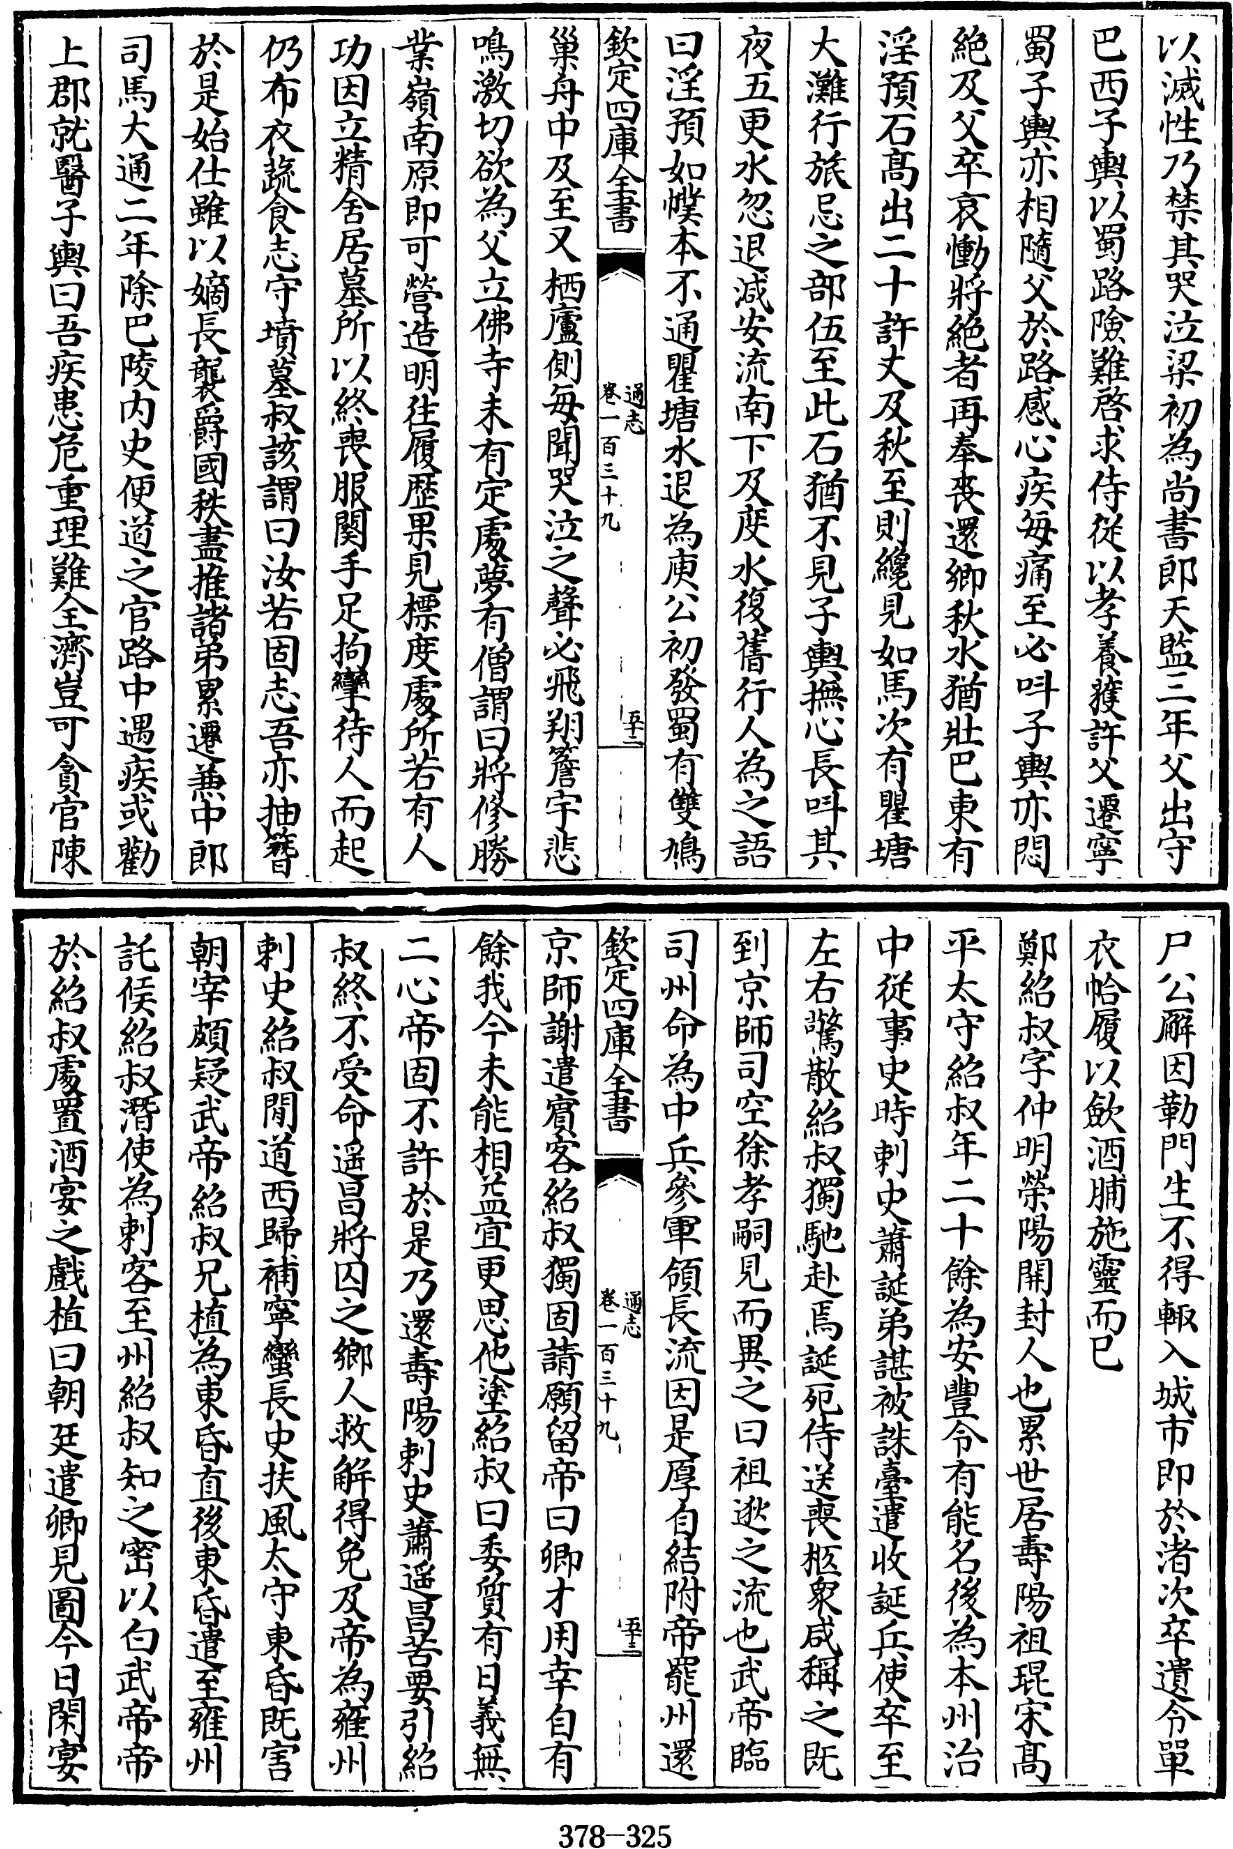 以滅性乃禁其哭泣梁初為尚書郎天監三年父出守
巴西子輿以蜀路險難啓求侍從以孝養獲許父遷寧
蜀子輿亦相隨父於路感心疾每痛至必呌子輿亦悶
絶及父卒哀慟將絶者再奉喪還鄉秋水猶壯巴東有
淫預石髙出二十許丈及秋至則纔見如馬次有瞿塘
大灘行旅忌之部伍至此石猶不見子輿撫心長呌其
夜五更水忽退減安流南下及度水復舊行人為之語
曰淫預如幞本不通瞿塘水退為庾公初發蜀有雙鳩
欽定四庫全書
通志
卷一百三十九
五十二
巢舟中及至又栖廬側每聞哭泣之聲必飛翔簷宇悲
鳴激切欲為父立佛寺未有定處夢有僧謂曰將修勝
業嶺南原即可營造明往履歴果見標度處所若有人
功因立精舍居墓所以終喪服闋手足拘攣待人而起
仍布衣蔬食志守墳墓叔該謂曰汝若固志吾亦抽簪
於是始仕雖以嫡長襲爵國秩盡推諸弟累遷兼中郎
司馬大通二年除巴陵内史便道之官路中遇疾或勸
上郡就醫子輿曰吾疾患危重理難全濟豈可貪官陳
尸公廨因勒門生不得輙入城市即於渚次卒遺令單
衣帢履以歛酒脯施靈而已
鄭紹叔字仲明榮陽開封人也累世居壽陽祖琨宋髙
平太守紹叔年二十餘為安豐令有能名後為本州治
中從事史時刺史蕭誕弟諶被誅臺遣收誕兵使卒至
左右驚散紹叔獨馳赴焉誕死侍送喪柩衆咸稱之既
到京師司空徐孝嗣見而異之曰祖逖之流也武帝臨
司州命為中兵參軍領長流因是厚自結附帝罷州還
欽定四庫全書
通志
卷一百三十九
五十三
京師謝遣賓客紹叔獨固請願留帝曰卿才用幸自有
餘我今未能相益宜更思他塗紹叔曰委質有日義無
二心帝固不許於是乃還壽陽刺史蕭遥昌苦要引紹
叔終不受命遥昌將囚之鄉人救解得免及帝為雍州
刺史紹叔間道西歸補寧蠻長史扶風太守東昏既害
朝宰頗疑武帝紹叔兄植為東昏直後東昏遣至雍州
託候紹叔潛使為刺客至州紹叔知之密以白武帝帝
於紹叔處置酒宴之戲植曰朝廷遣卿見圖今日閑宴
378-325